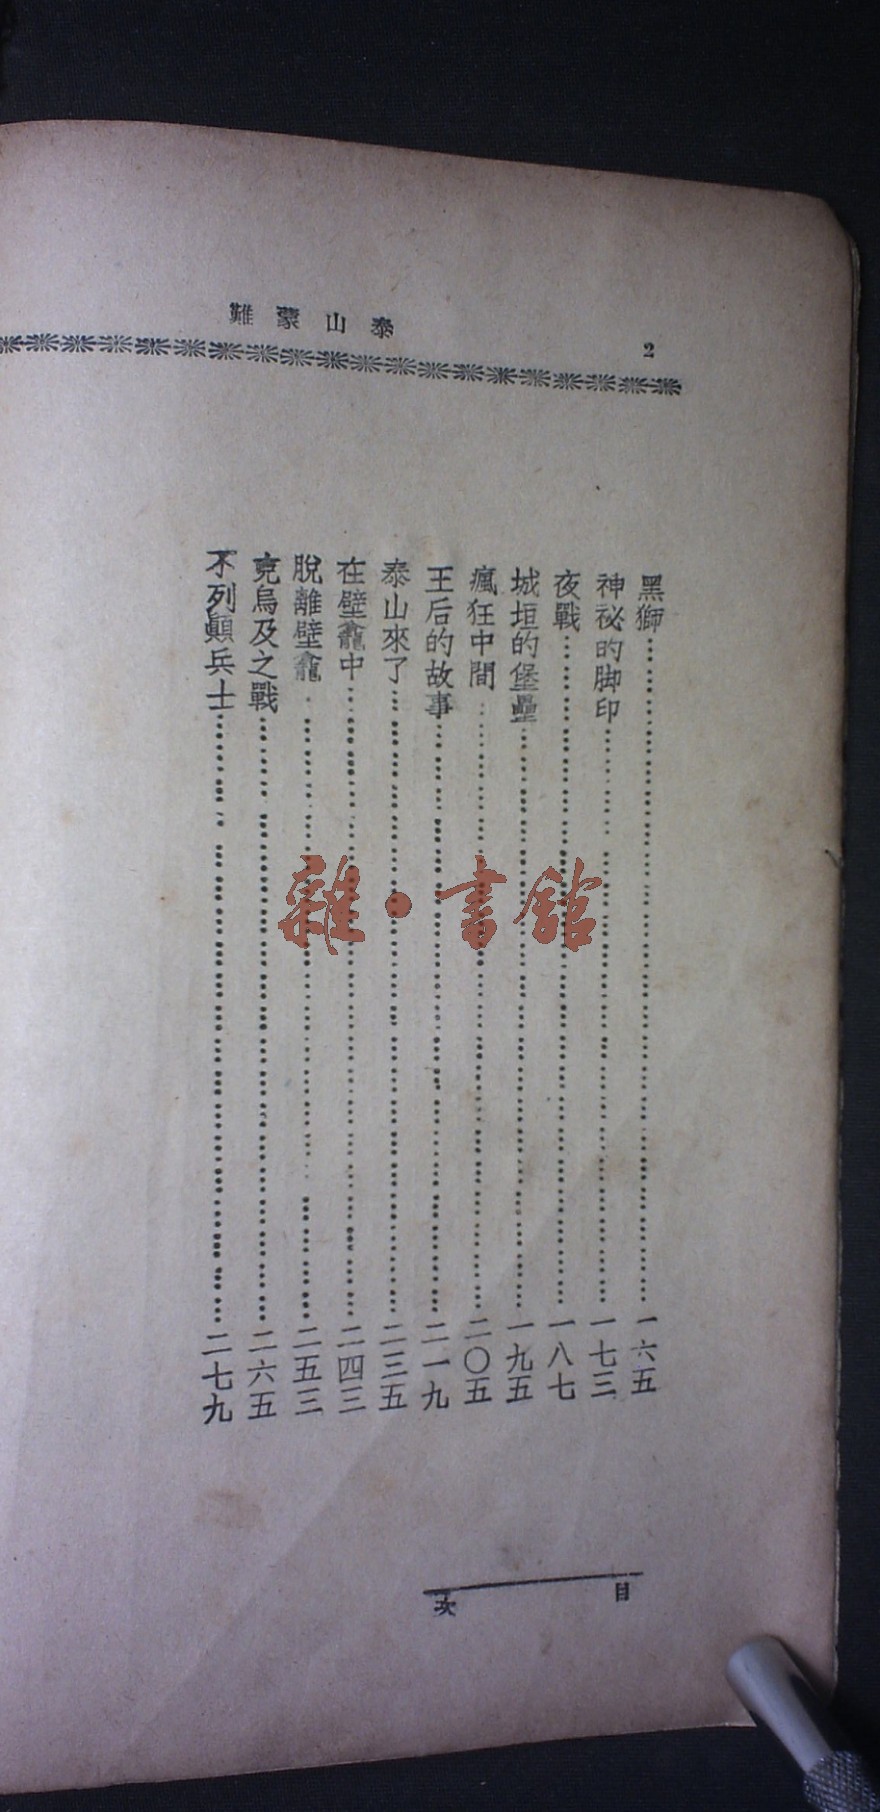 泰山蒙難
2
黑獅……一六五
神祕的脚印……一七三
夜戰……一八七
城垣的堡壘……一九五
瘋狂中間……二〇五
王后的故事……二一九
泰山來了……二三五
在壁龕中……二四三
脫離壁龕……二五三
克烏及之戰……二六五
不列顛兵士……二七九
目次
雜·書館